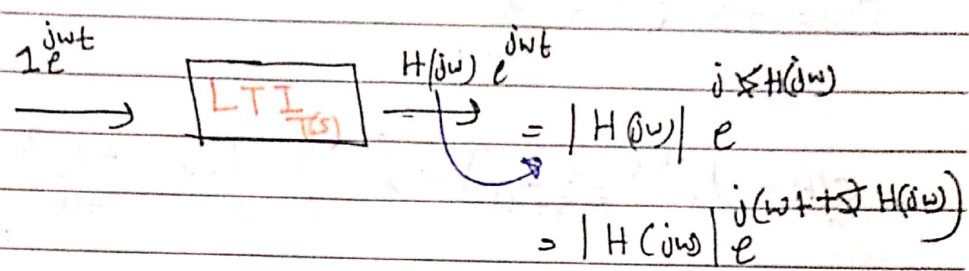 1 e^{jωt} → LTI T(s) → H(jω) e^{jωt}
= |H(jω)| e^{j∡H(jω)}
= |H(jω)| e^{j(ωt + ∡H(jω))}